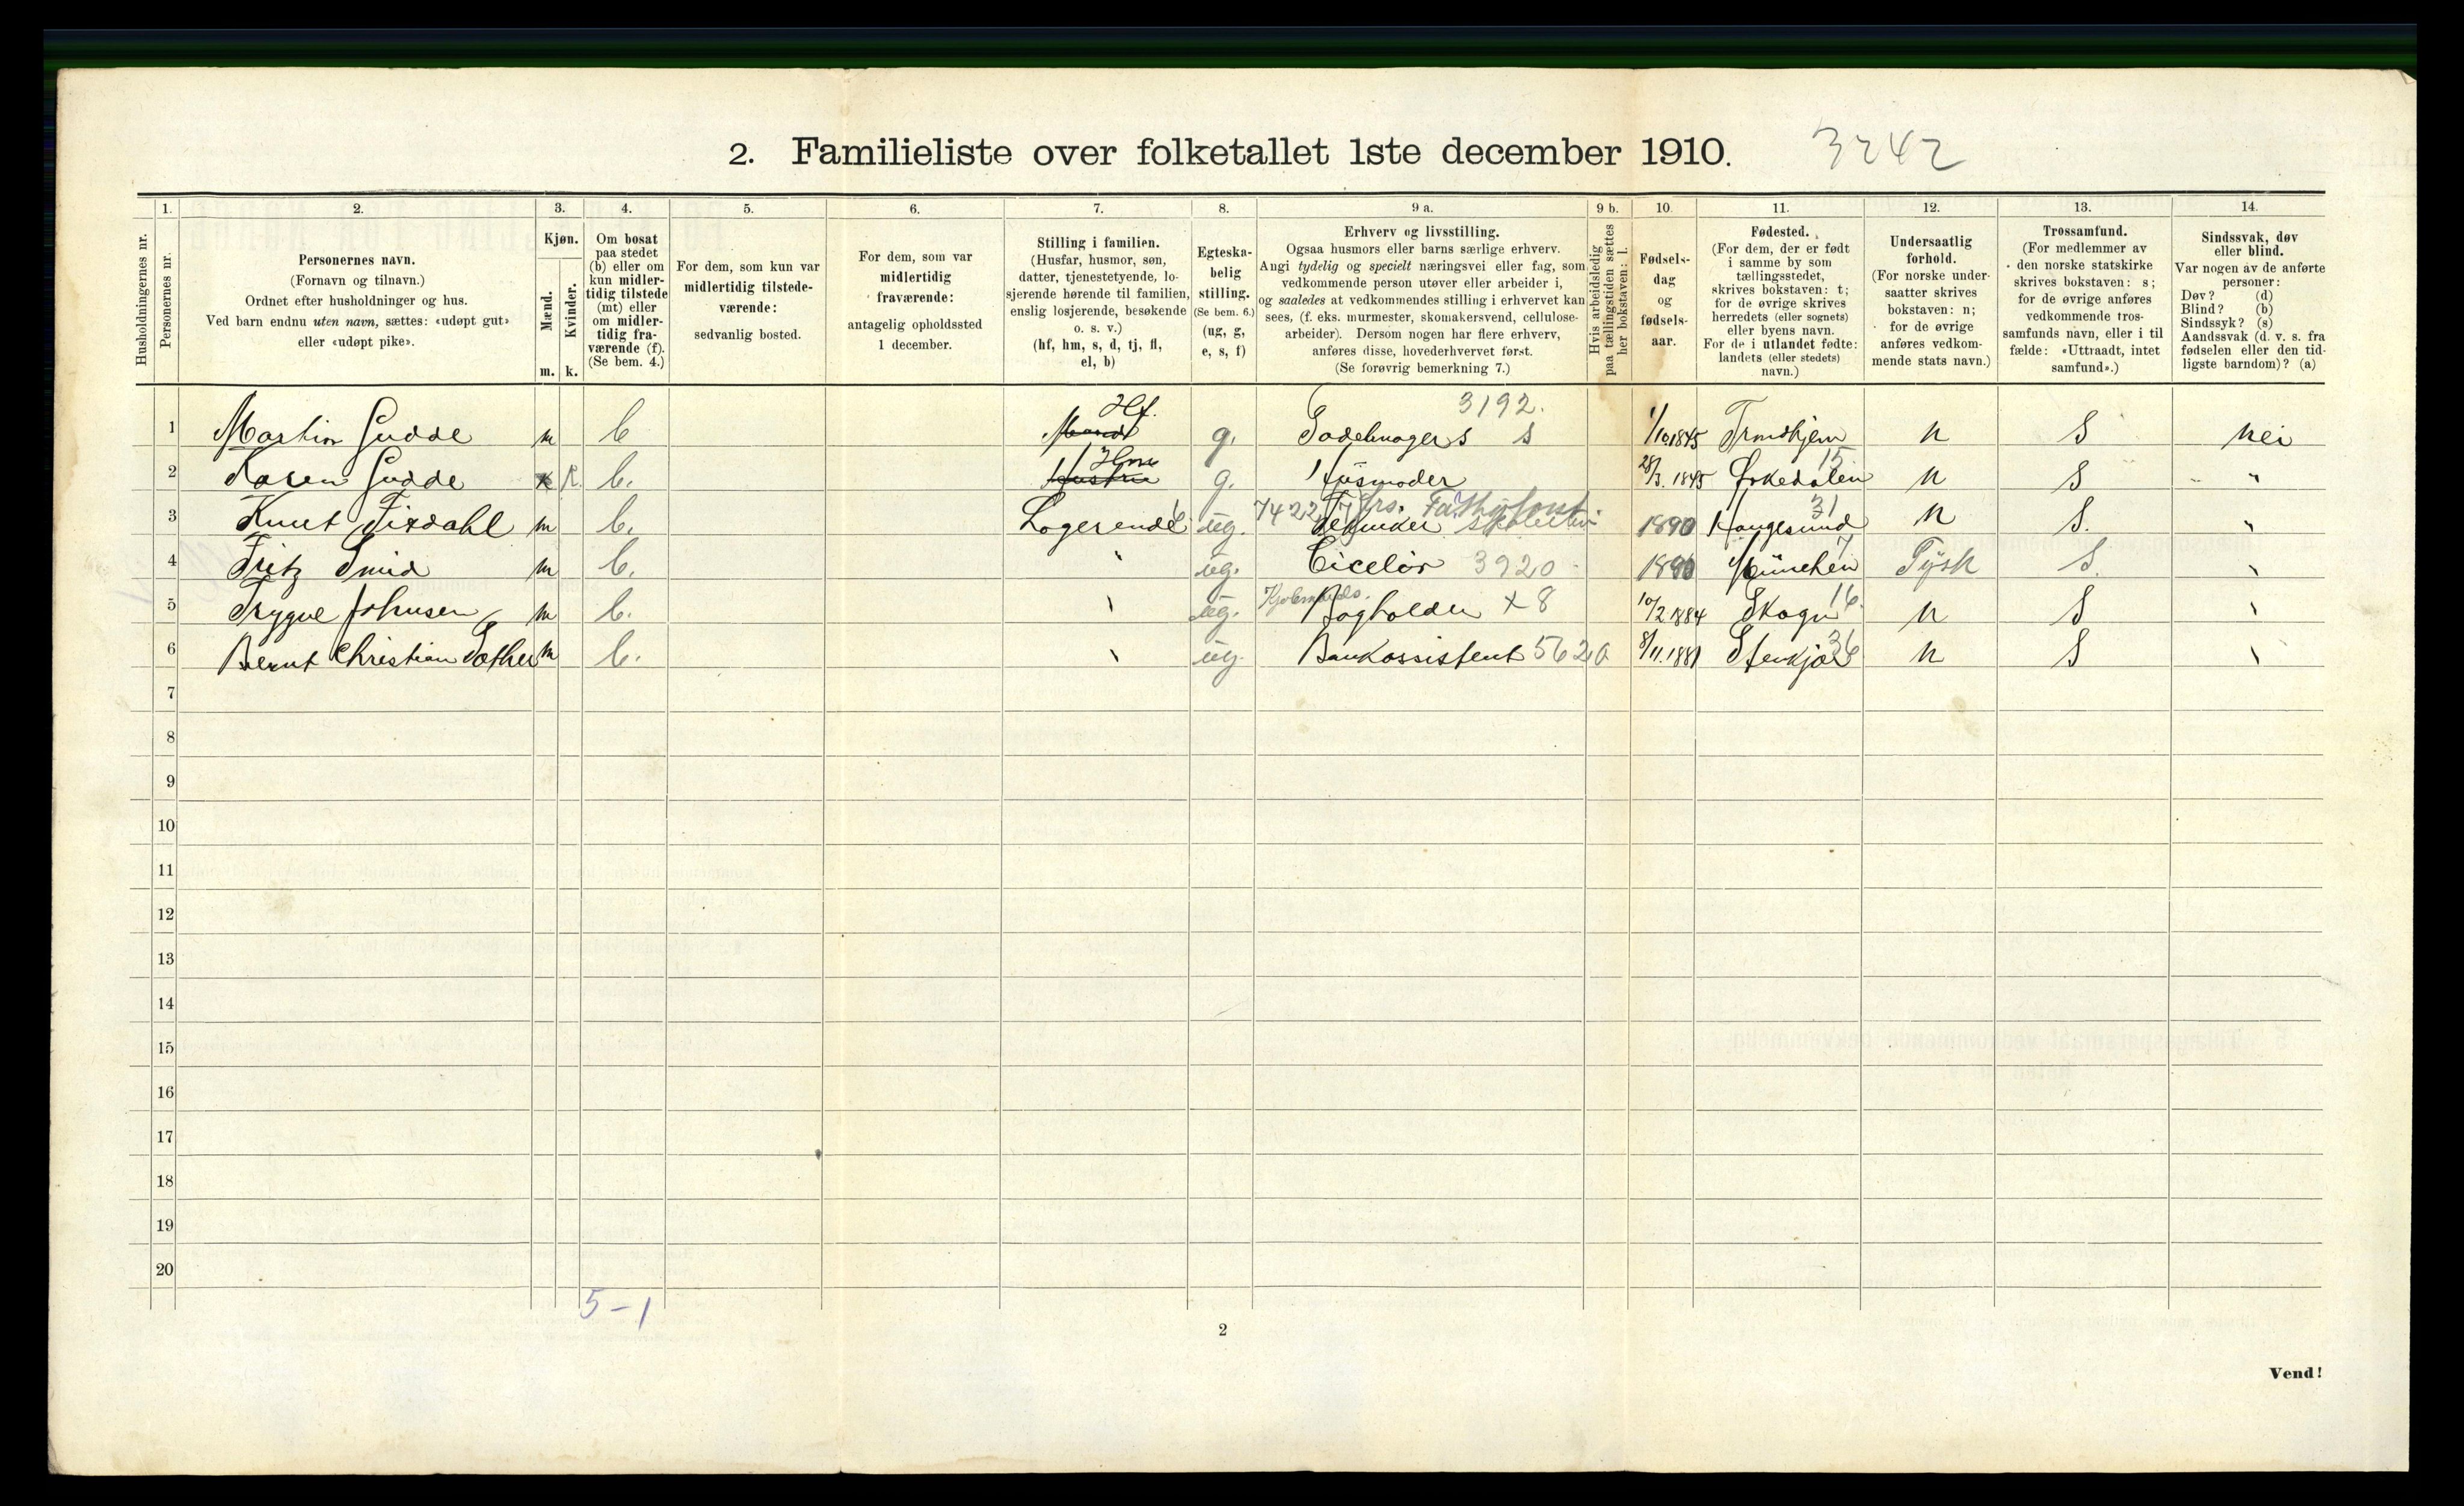 2. Familieliste over folketallet 1ste december 1910. 3242
Husholdningernes nr.
1. Personernes nr.
2. Personernes navn.
(Fornavn og tilnavn.)
Ordnet efter husholdninger og hus.
Ved barn endnu uten navn, sættes: «udøpt gut»
eller «udøpt pike».
3. Kjøn.
Mænd. m.
Kvinder. k.
4. Om bosat
paa stedet
(b) eller om
kun midler-
tidig tilstede
(mt) eller
om midler-
tidig fra-
værende (f).
(Se bem. 4.)
5. For dem, som kun var
midlertidig tilstede-
værende:
sedvanlig bosted.
6. For dem, som var
midlertidig
fraværende:
antagelig opholdssted
1 december.
7. Stilling i familien.
(Husfar, husmor, søn,
datter, tjenestetyende, lo-
sjerende hørende til familien,
enslig losjerende, besøkende
o. s. v.)
(hf, hm, s, d, tj, fl,
el, b)
8. Egteska-
belig
stilling.
(Se bem. 6.)
(ug, g,
e, s, f)
9 a. Erhverv og livsstilling.
Ogsaa husmors eller barns særlige erhverv.
Angi tydelig og specielt næringsvei eller fag, som
vedkommende person utøver eller arbeider i,
og saaledes at vedkommendes stilling i erhvervet kan
sees, (f. eks. murmester, skomakersvend, cellulose-
arbeider). Dersom nogen har flere erhverv,
anføres disse, hovederhvervet først.
(Se forøvrig bemerkning 7.)
9 b. Hvis arbeidsledig
paa tællingstiden sættes
her bokstaven: l.
10. Fødsels-
dag
og
fødsels-
aar.
11. Fødested.
(For dem, der er født
i samme by som
tællingsstedet,
skrives bokstaven: t;
for de øvrige skrives
herredets (eller sognets)
eller byens navn.
For de i utlandet fødte:
landets (eller stedets)
navn.)
12. Undersaatlig
forhold.
(For norske under-
saatter skrives
bokstaven: n;
for de øvrige
anføres vedkom-
mende stats navn.)
13. Trossamfund.
(For medlemmer av
den norske statskirke
skrives bokstaven: s;
for de øvrige anføres
vedkommende tros-
samfunds navn, eller i til
fælde: «Uttraadt, intet
samfund».)
14. Sindssvak, døv
eller blind.
Var nogen av de anførte
personer:
Døv? (d)
Blind? (b)
Sindssyk? (s)
Aandssvak (d. v. s. fra
fødselen eller den tid-
ligste barndom)? (a)
Hf. 3192.
1 Martin Gudde m b Mand g. Sadelmager s 1/10 1845 Trondhjem n S nei
Hm 15
2 Karen Gudde k b. Hustru g. Husmoder 28/3. 1845 Orkedalen n S "
7422 31
3 Knut m b. Logerende ug. Tekniker 1890 Haugesund n S. "
7
4 Fritz Smid m b. " ug. Cicelør 3920 1890 München Tysk S. "
Kjøbmands. 16
5 Trygve Johnsen m b. " ug. Bogholder x 8 10/2 1884 Skogn n S "
36
6 Bernt Christian m b. " ug. Bankassistent 5620 8/11. 1881 Stenkjær n S "
7
8
9
10
11
12
13
14
15
16
17
18
19
20
5-1
2
Vend!